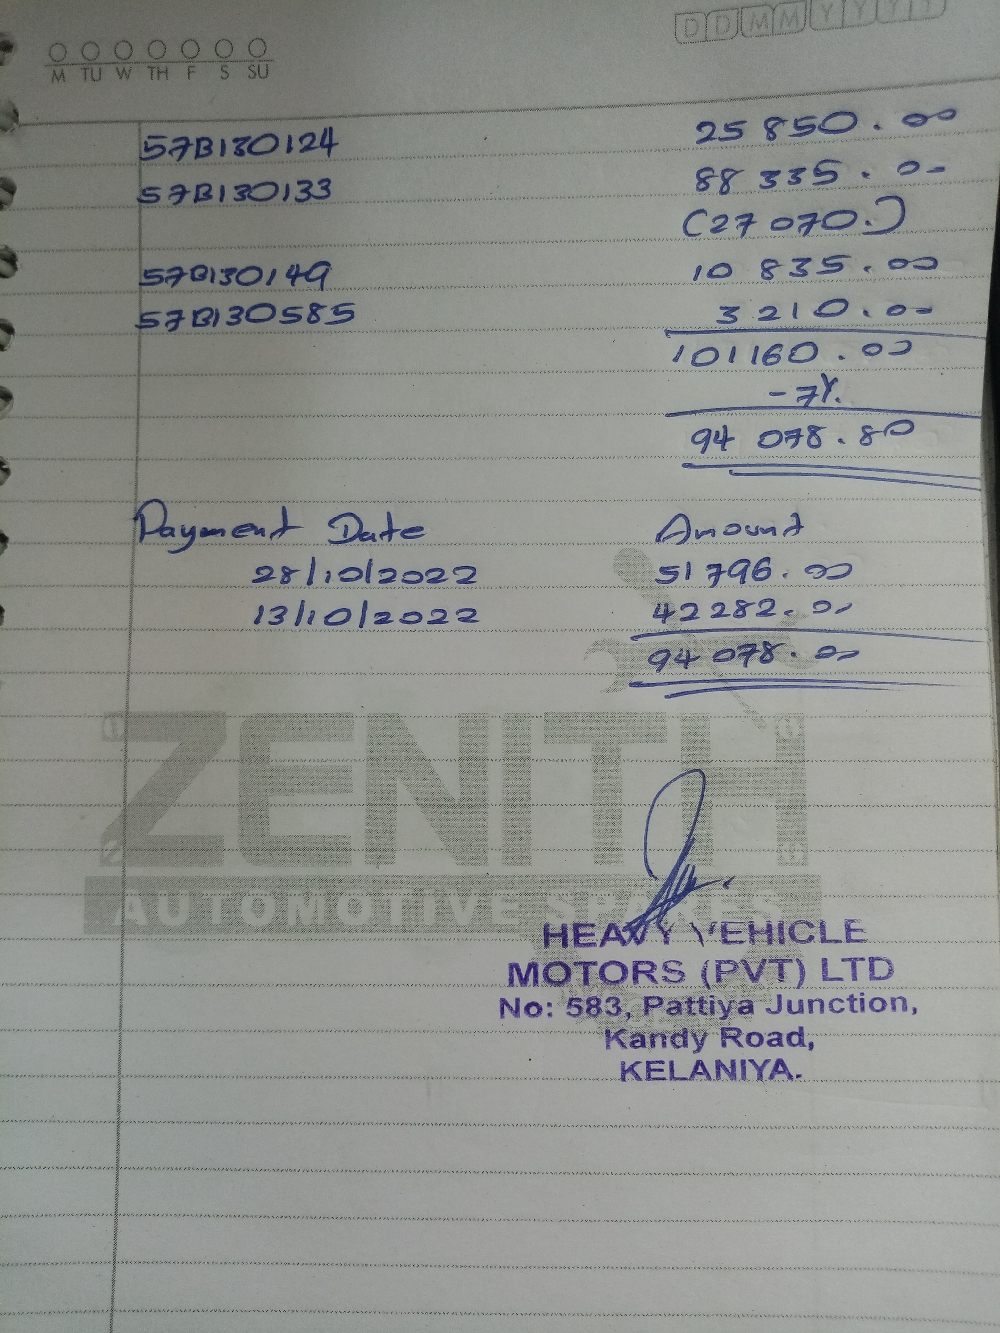 D D M M Y Y Y Y
M TU W TH F S SU
57B130124 25 850.00
57B130133 88 335.00
(27 070.)
57B130149 10 835.00
57B130585 3 210.00
101160.00
-7%
94 078.80
Payment Date Amount
28/10/2022 51 796.00
13/10/2022 42 282.00
94 078.00
ZENITH
AUTOMOTIVE SPARES
HEAVY VEHICLE
MOTORS (PVT) LTD
No: 583, Pattiya Junction,
Kandy Road,
KELANIYA.